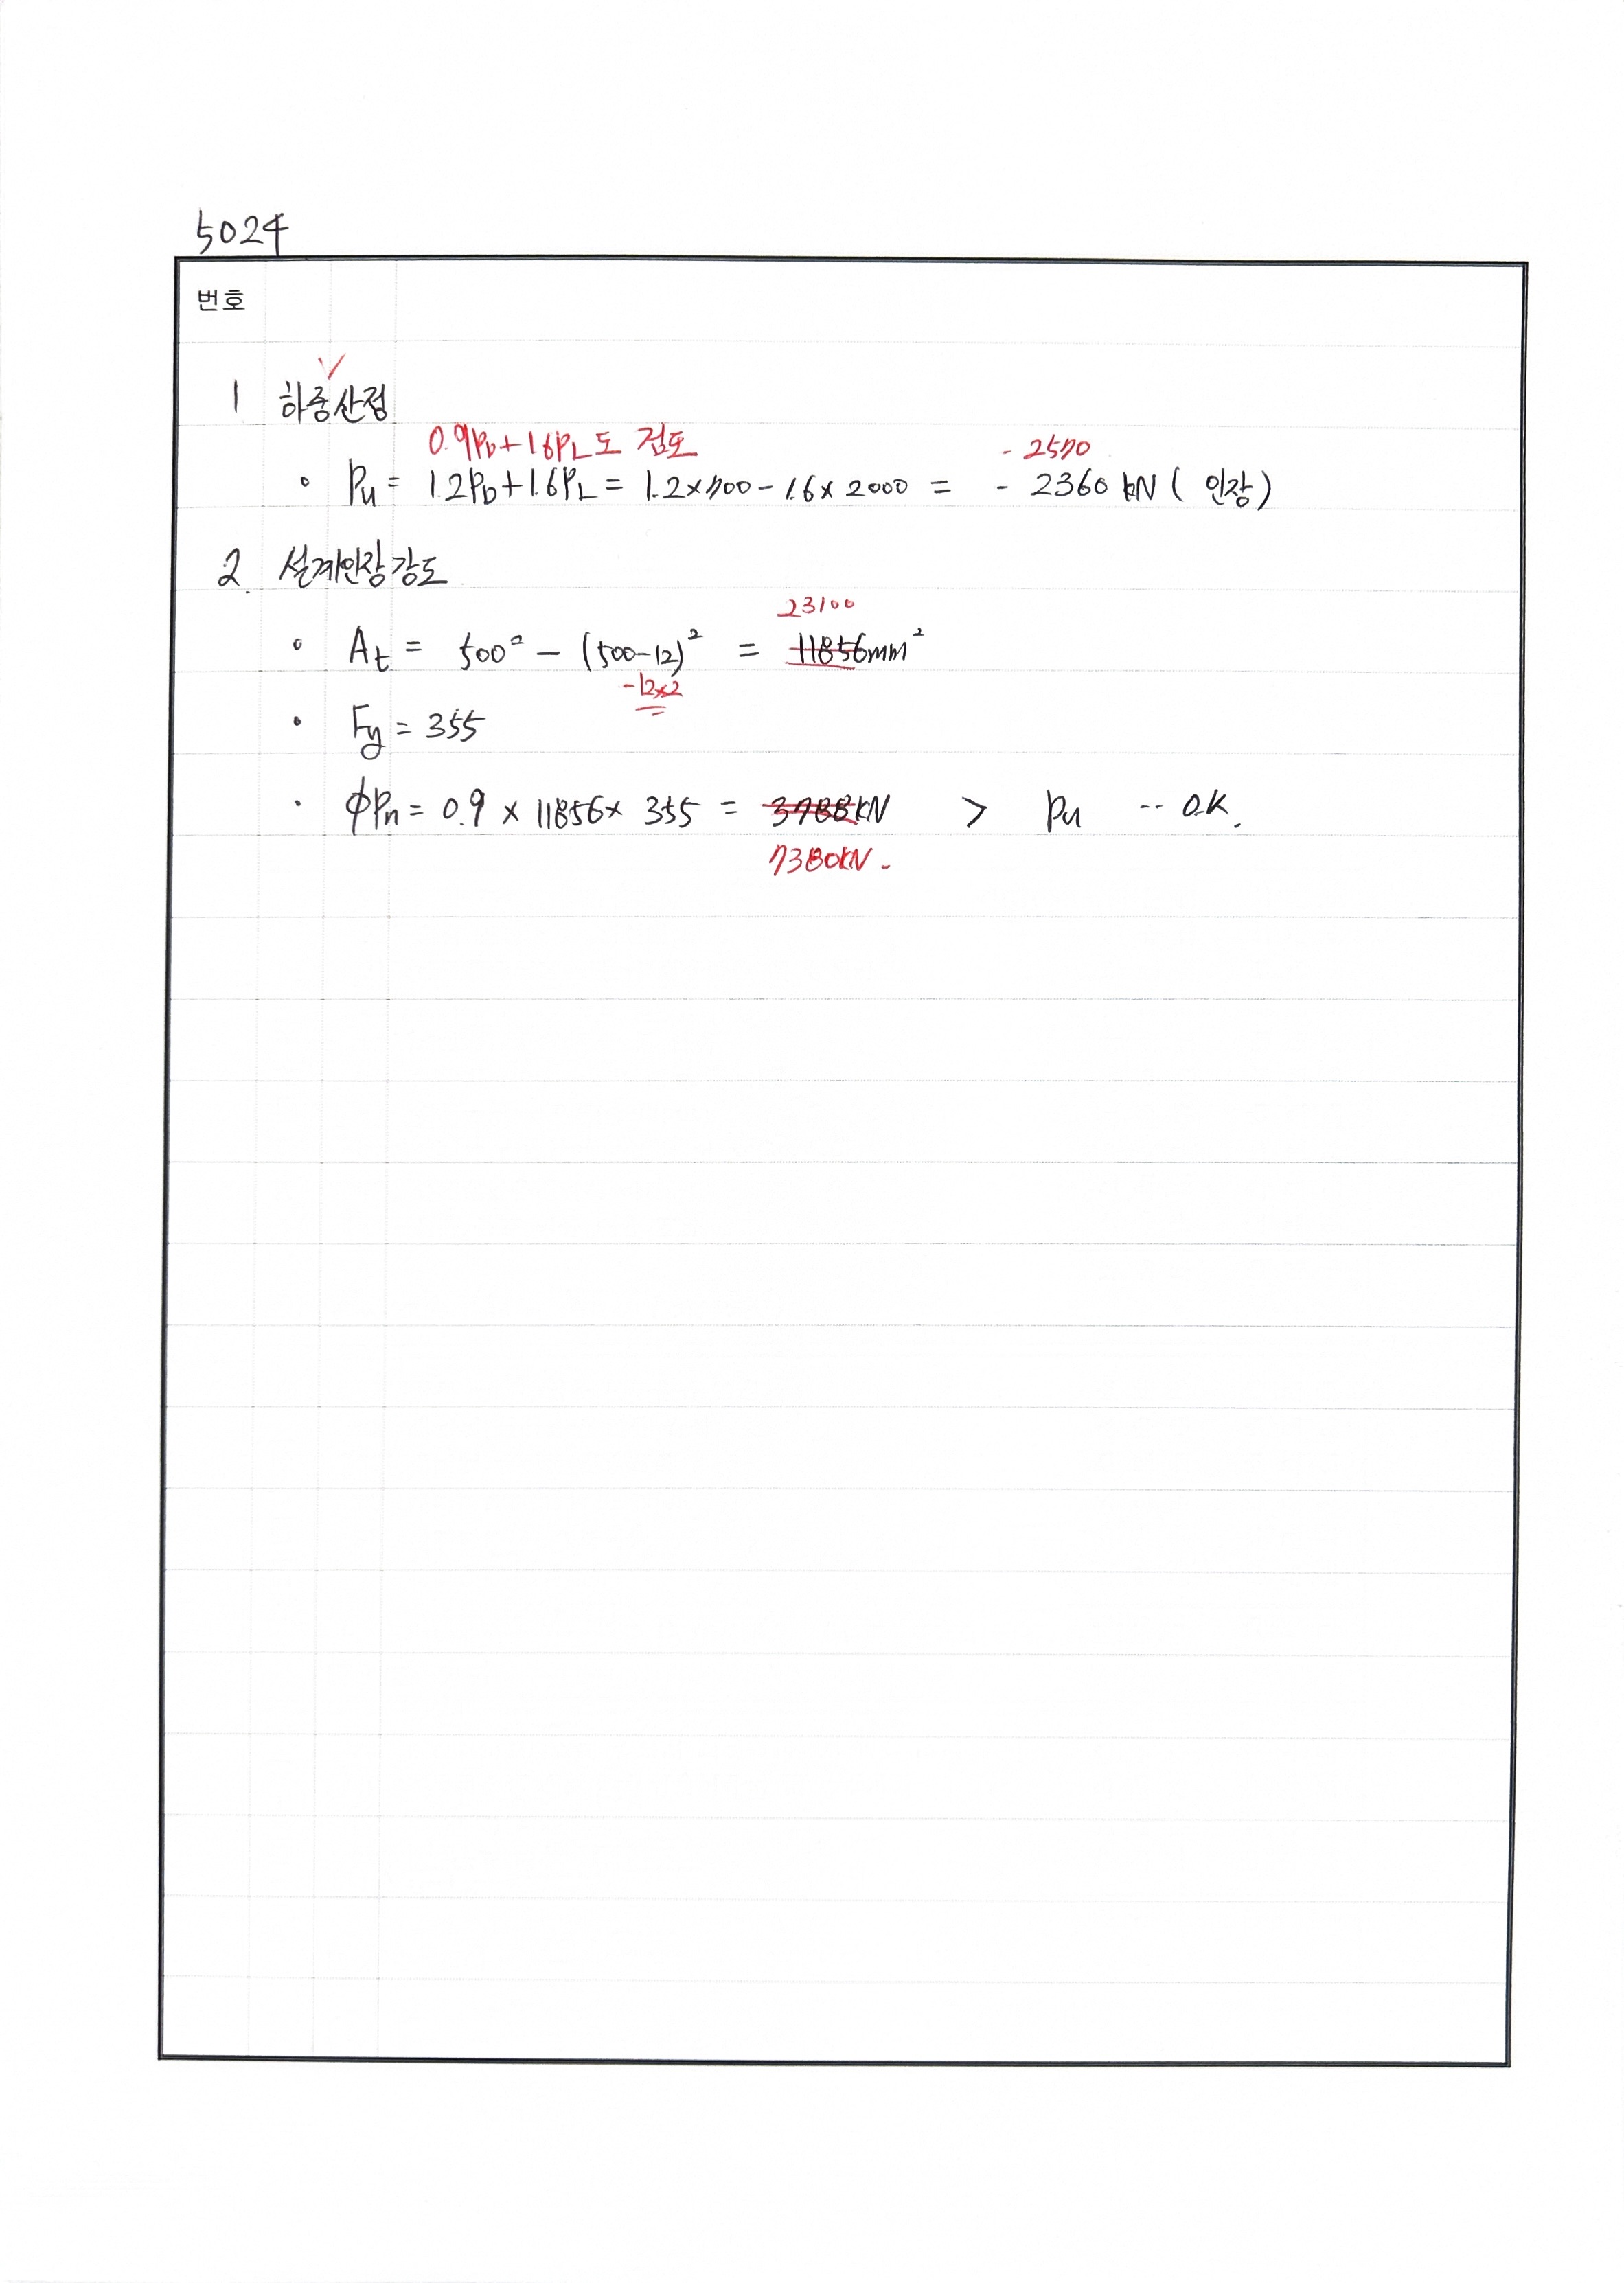 5024
번호
1 하중산정
0.9PD+1.6PL도 검토
- 2570
∘ Pu = 1.2PD+1.6PL = 1.2×700-1.6×2000 = - 2360 kN ( 인장)
2. 설계인장강도
23100
∘ At = 500² - (500-12)² = 11856mm²
-12×2
• Fy = 355
• ϕPn = 0.9 × 11856× 355 = 3788kN > Pu -- O.K.
7380kN -